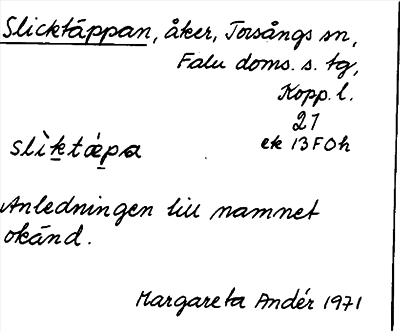 Slicktäppan, åker, Torsångs sn,
Falu doms. s. tg,
Kopp. l.
21
ek 13F0h
slìktǽpa
Anledningen till namnet
okänd.
Margareta Andér 1971